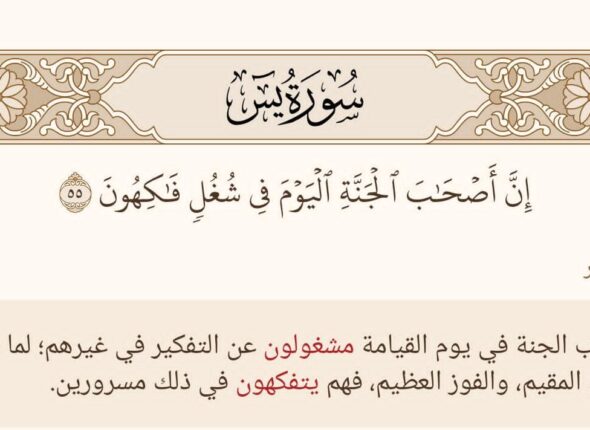 سُورَةُ يسٓ
إِنَّ أَصْحَٰبَ ٱلْجَنَّةِ ٱلْيَوْمَ فِى شُغُلٍ فَٰكِهُونَ ٥٥
الجنة في يوم القيامة مشغولون عن التفكير في غيرهم؛ لما
المقيم، والفوز العظيم، فهم يتفكهون في ذلك مسرورين.